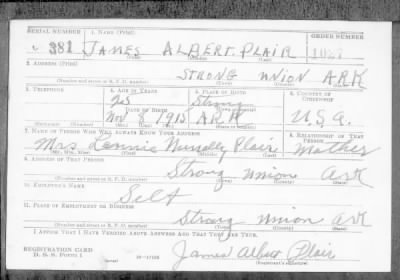 SERIAL NUMBER 1. NAME (Print) ORDER NUMBER
381 JAMES ALBERT PLAIR 1027
2. ADDRESS (Print)
STRONG UNION ARK
(Number and street or R. F. D. number) (Town) (County) (State)
3. TELEPHONE 4. AGE IN YEARS 5. PLACE OF BIRTH 6. COUNTRY OF CITIZENSHIP
25 Strong
DATE OF BIRTH (Town or county)
Nov 8 1915 ARK U.S.a.
(Exchange) (Number) (Mo.) (Day) (Yr.) (State or country)
7. NAME OF PERSON WHO WILL ALWAYS KNOW YOUR ADDRESS 8. RELATIONSHIP OF THAT PERSON
Mrs. Nunally Plair Mother
(Mr., Mrs., Miss) (First) (Middle) (Last)
9. ADDRESS OF THAT PERSON
Strong Union Ark
(Number and street or R. F. D. number) (Town) (County) (State)
10. EMPLOYER'S NAME
Self
11. PLACE OF EMPLOYMENT OR BUSINESS
Strong Union Ark
(Number and street or R. F. D. number) (Town) (County) (State)
I AFFIRM THAT I HAVE VERIFIED ABOVE ANSWERS AND THAT THEY ARE TRUE.
REGISTRATION CARD
D. S. S. FORM 1 James Albert Plair
(Registrant's signature)